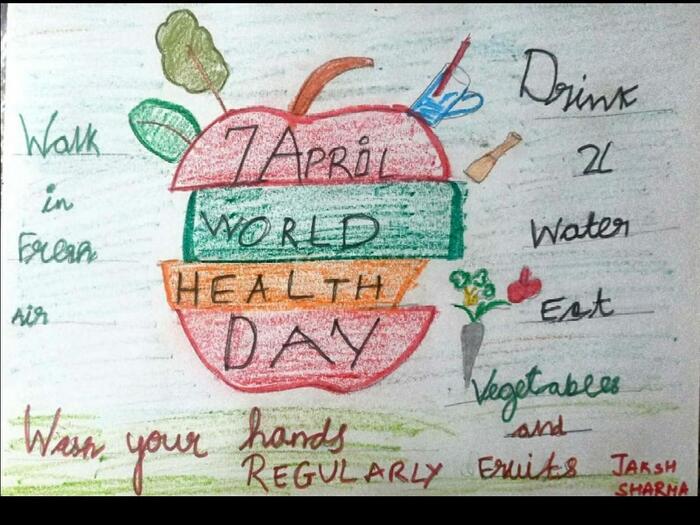 7 APRIL
WORLD
HEALTH
DAY
Walk
in
Fresh
Air
Drink
2L
Water
Eat
Vegetables
and
Fruits
Wash your hands
REGULARLY
JAKSH
SHARMA